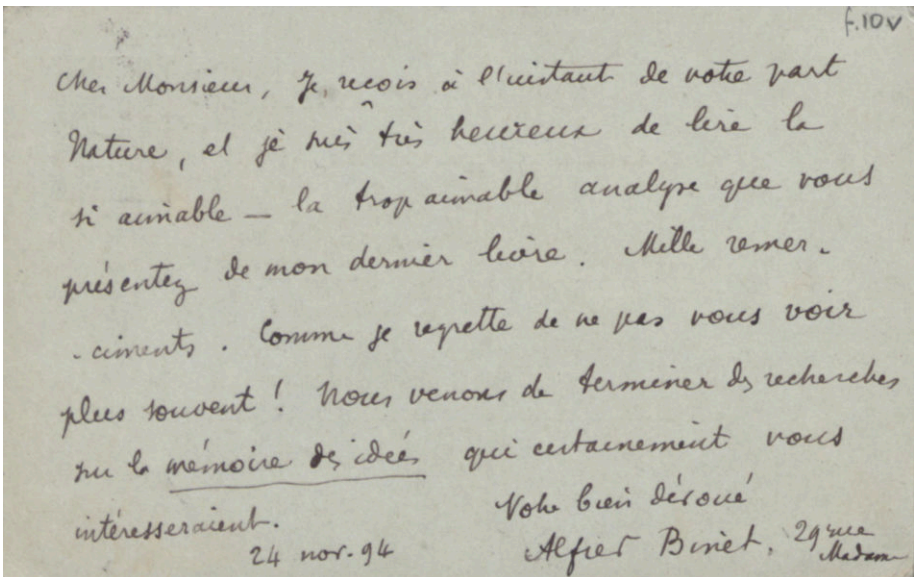 f.10v
Cher Monsieur, Je reçois à l'instant de votre part
Nature, et je suis très heureux de lire la
si aimable — la trop aimable analyse que vous
présentez de mon dernier livre. Mille remer-
-ciments. Comme je regrette de ne pas vous voir
plus souvent ! Nous venons de terminer des recherches
sur la mémoire des idées qui certainement vous
intéresseraient.
Votre bien dévoué
24 nov. 94
Alfred Binet, 29 rue
Madame